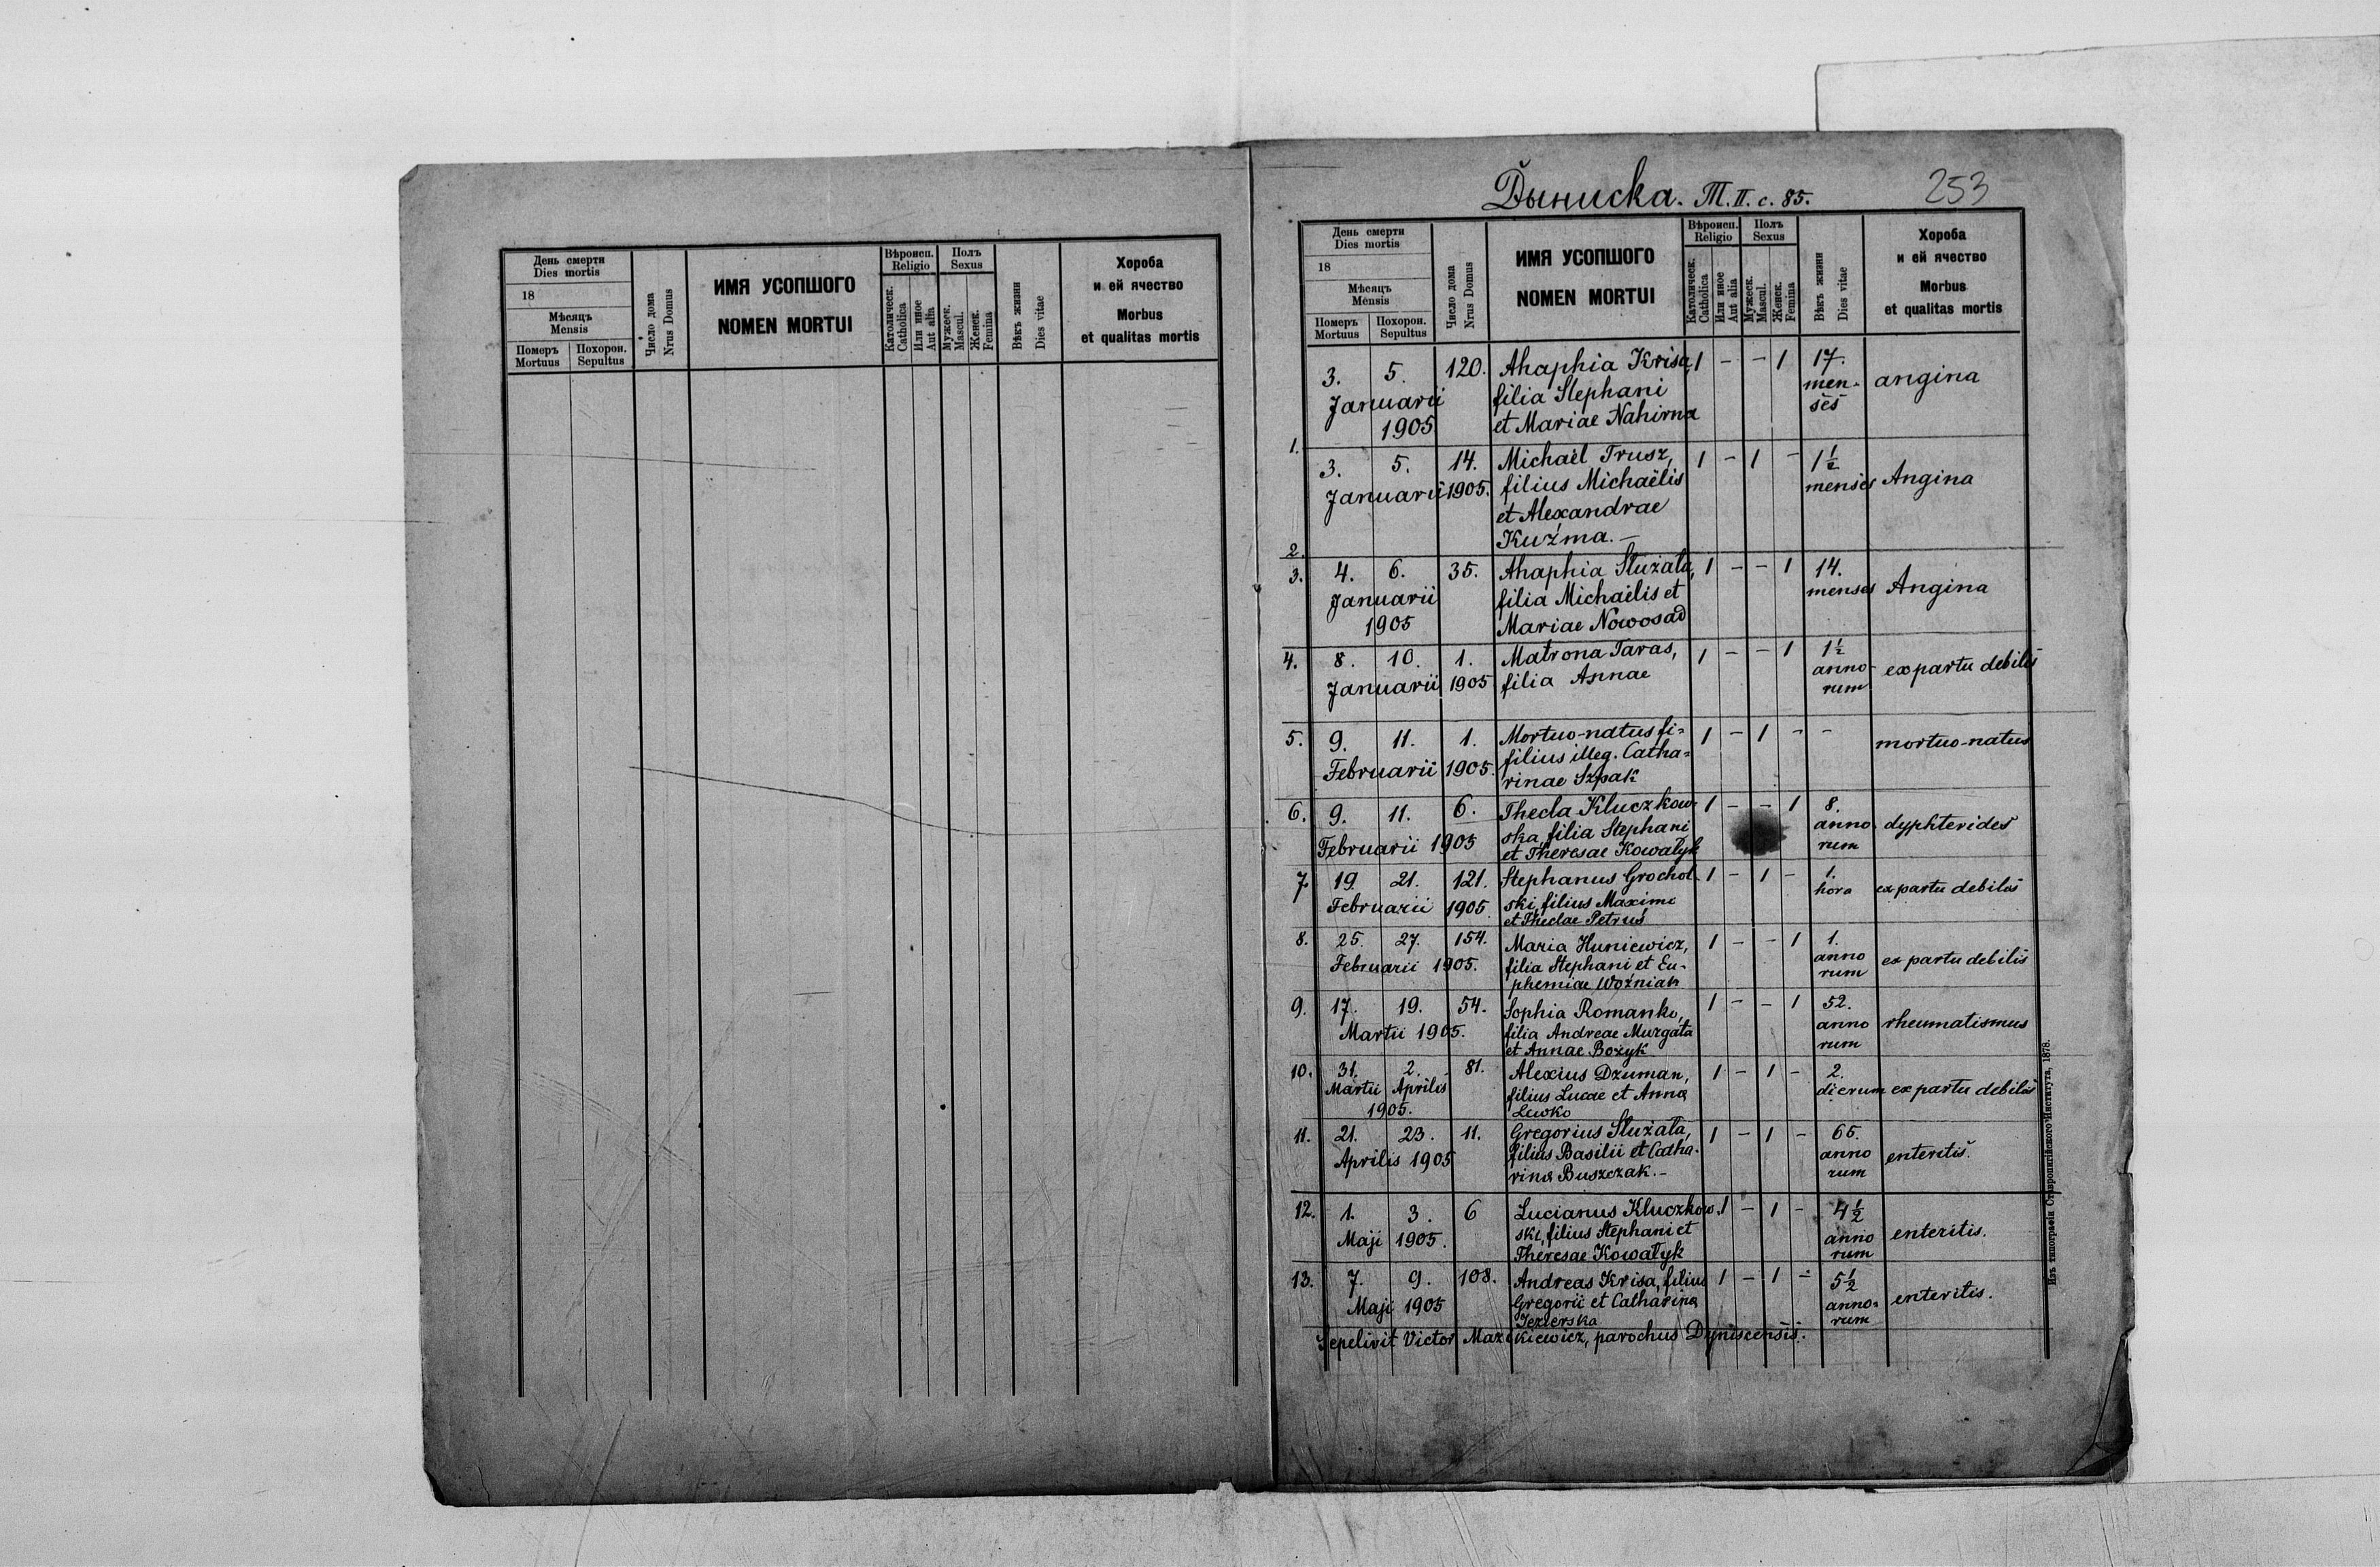 День смерти
Dies mortis
18
Мѣсяцъ
Mensis
Померъ
Mortuus
Похорон.
Sepultus
Число дома
Nrus Domus
ИМЯ УСОПШОГО
NOMEN MORTUI
Вѣроисп.
Religio
Католическ.
Catholica
Или иное
Aut alia
Полъ
Sexus
Мужеск.
Mascul.
Женск.
Femina
Вѣкъ жизни
Dies vitae
Хороба
и ей ячество
Morbus
et qualitas mortis
Дыниска. Т. II. с. 85.
253
День смерти
Dies mortis
18
Мѣсяцъ
Mensis
Померъ
Mortuus
Похорон.
Sepultus
Число дома
Nrus Domus
ИМЯ УСОПШОГО
NOMEN MORTUI
Вѣроисп.
Religio
Католическ.
Catholica
Или иное
Aut alia
Полъ
Sexus
Мужеск.
Mascul.
Женск.
Femina
Вѣкъ жизни
Dies vitae
Хороба
и ей ячество
Morbus
et qualitas mortis
3. 5. 120. Ahaphia Krisa, 1 – – 1 17.
Januarii filia Stephani men- angina
1905 et Mariae Nahirna ses
1.
3. 5. 14. Michaël Trusz, 1 – 1 – 1½
Januarii 1905. filius Michaëlis menses Angina
et Alexandrae
Kuźma. –
2.
3. 4. 6. 35. Ahaphia Służała, 1 – – 1 14.
Januarii filia Michaëlis et menses Angina
1905 Mariae Nowosad
4. 8. 10. 1. Matrona Taras, 1 – – 1 1½
Januarii 1905 filia Annae anno- ex partu debilis
rum
5. 9. 11. 1. Mortuo-natus fi- 1 – 1 – –
Februarii 1905. filius illeg. Catha- mortuo-natus
rinae Szpak
6. 9. 11. 6. Thecla Kluczkow- 1 – – 1 8.
Februarii 1905 ska, filia Stephani anno- dyphterides
et Theresae Kowalyk rum
7. 19. 21. 121. Stephanus Grochol- 1 – 1 – 1.
Februarii 1905. ski, filius Maximi hora ex partu debilis
et Theclae Petruś
8. 25. 27. 154. Maria Huniewicz, 1 – – 1 1.
Februarii 1905. filia Stephani et Eu- anno ex partu debilis
phemiae Woźniak rum
9. 17. 19. 54. Sophia Romanko, 1 – – 1 52.
Martii 1905. filia Andreae Murgała anno rheumatismus
et Annae Bożyk rum
10. 31. 2. 81. Alexius Dżuman, 1 – 1 – 2.
Martii Aprilis filius Lucae et Anna dierum ex partu debilis
1905. Lewko
11. 21. 23. 11. Gregorius Służała, 1 – 1 – 65.
Aprilis 1905 filius Basilii et Catha- anno enteritis.
rina Buszczak. – rum
12. 1. 3. 6 Lucianus Kluczkow- 1 – 1 – 4½
Maji 1905. ski, filius Stephani et anno enteritis.
Theresae Kowalyk rum
13. 7. 9. 108. Andreas Krisa, filius 1 – 1 – 5½
Maji 1905 Gregorii et Catharina anno- enteritis.
Jezierska rum
Sepelivit Victor Mazikiewicz, parochus Dyniscensis.
Изъ типографіи Ставропигійского Института, 1878.